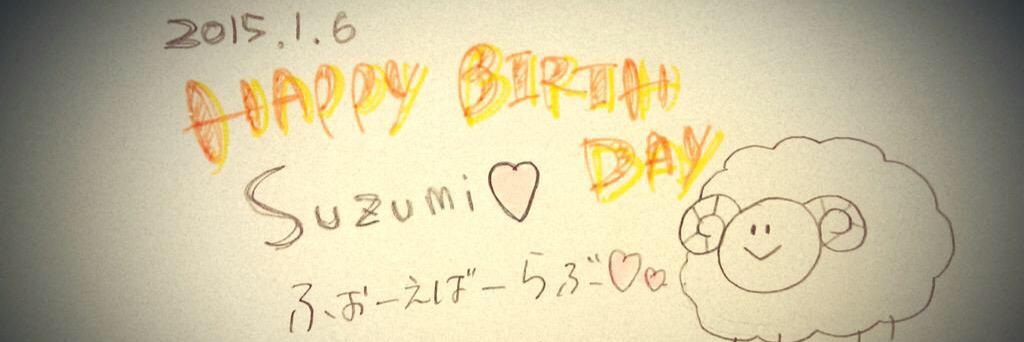 2015.1.6
HAPPY BIRTH
DAY
Suzumi♡
ふぉーえばーらぶ♡♡